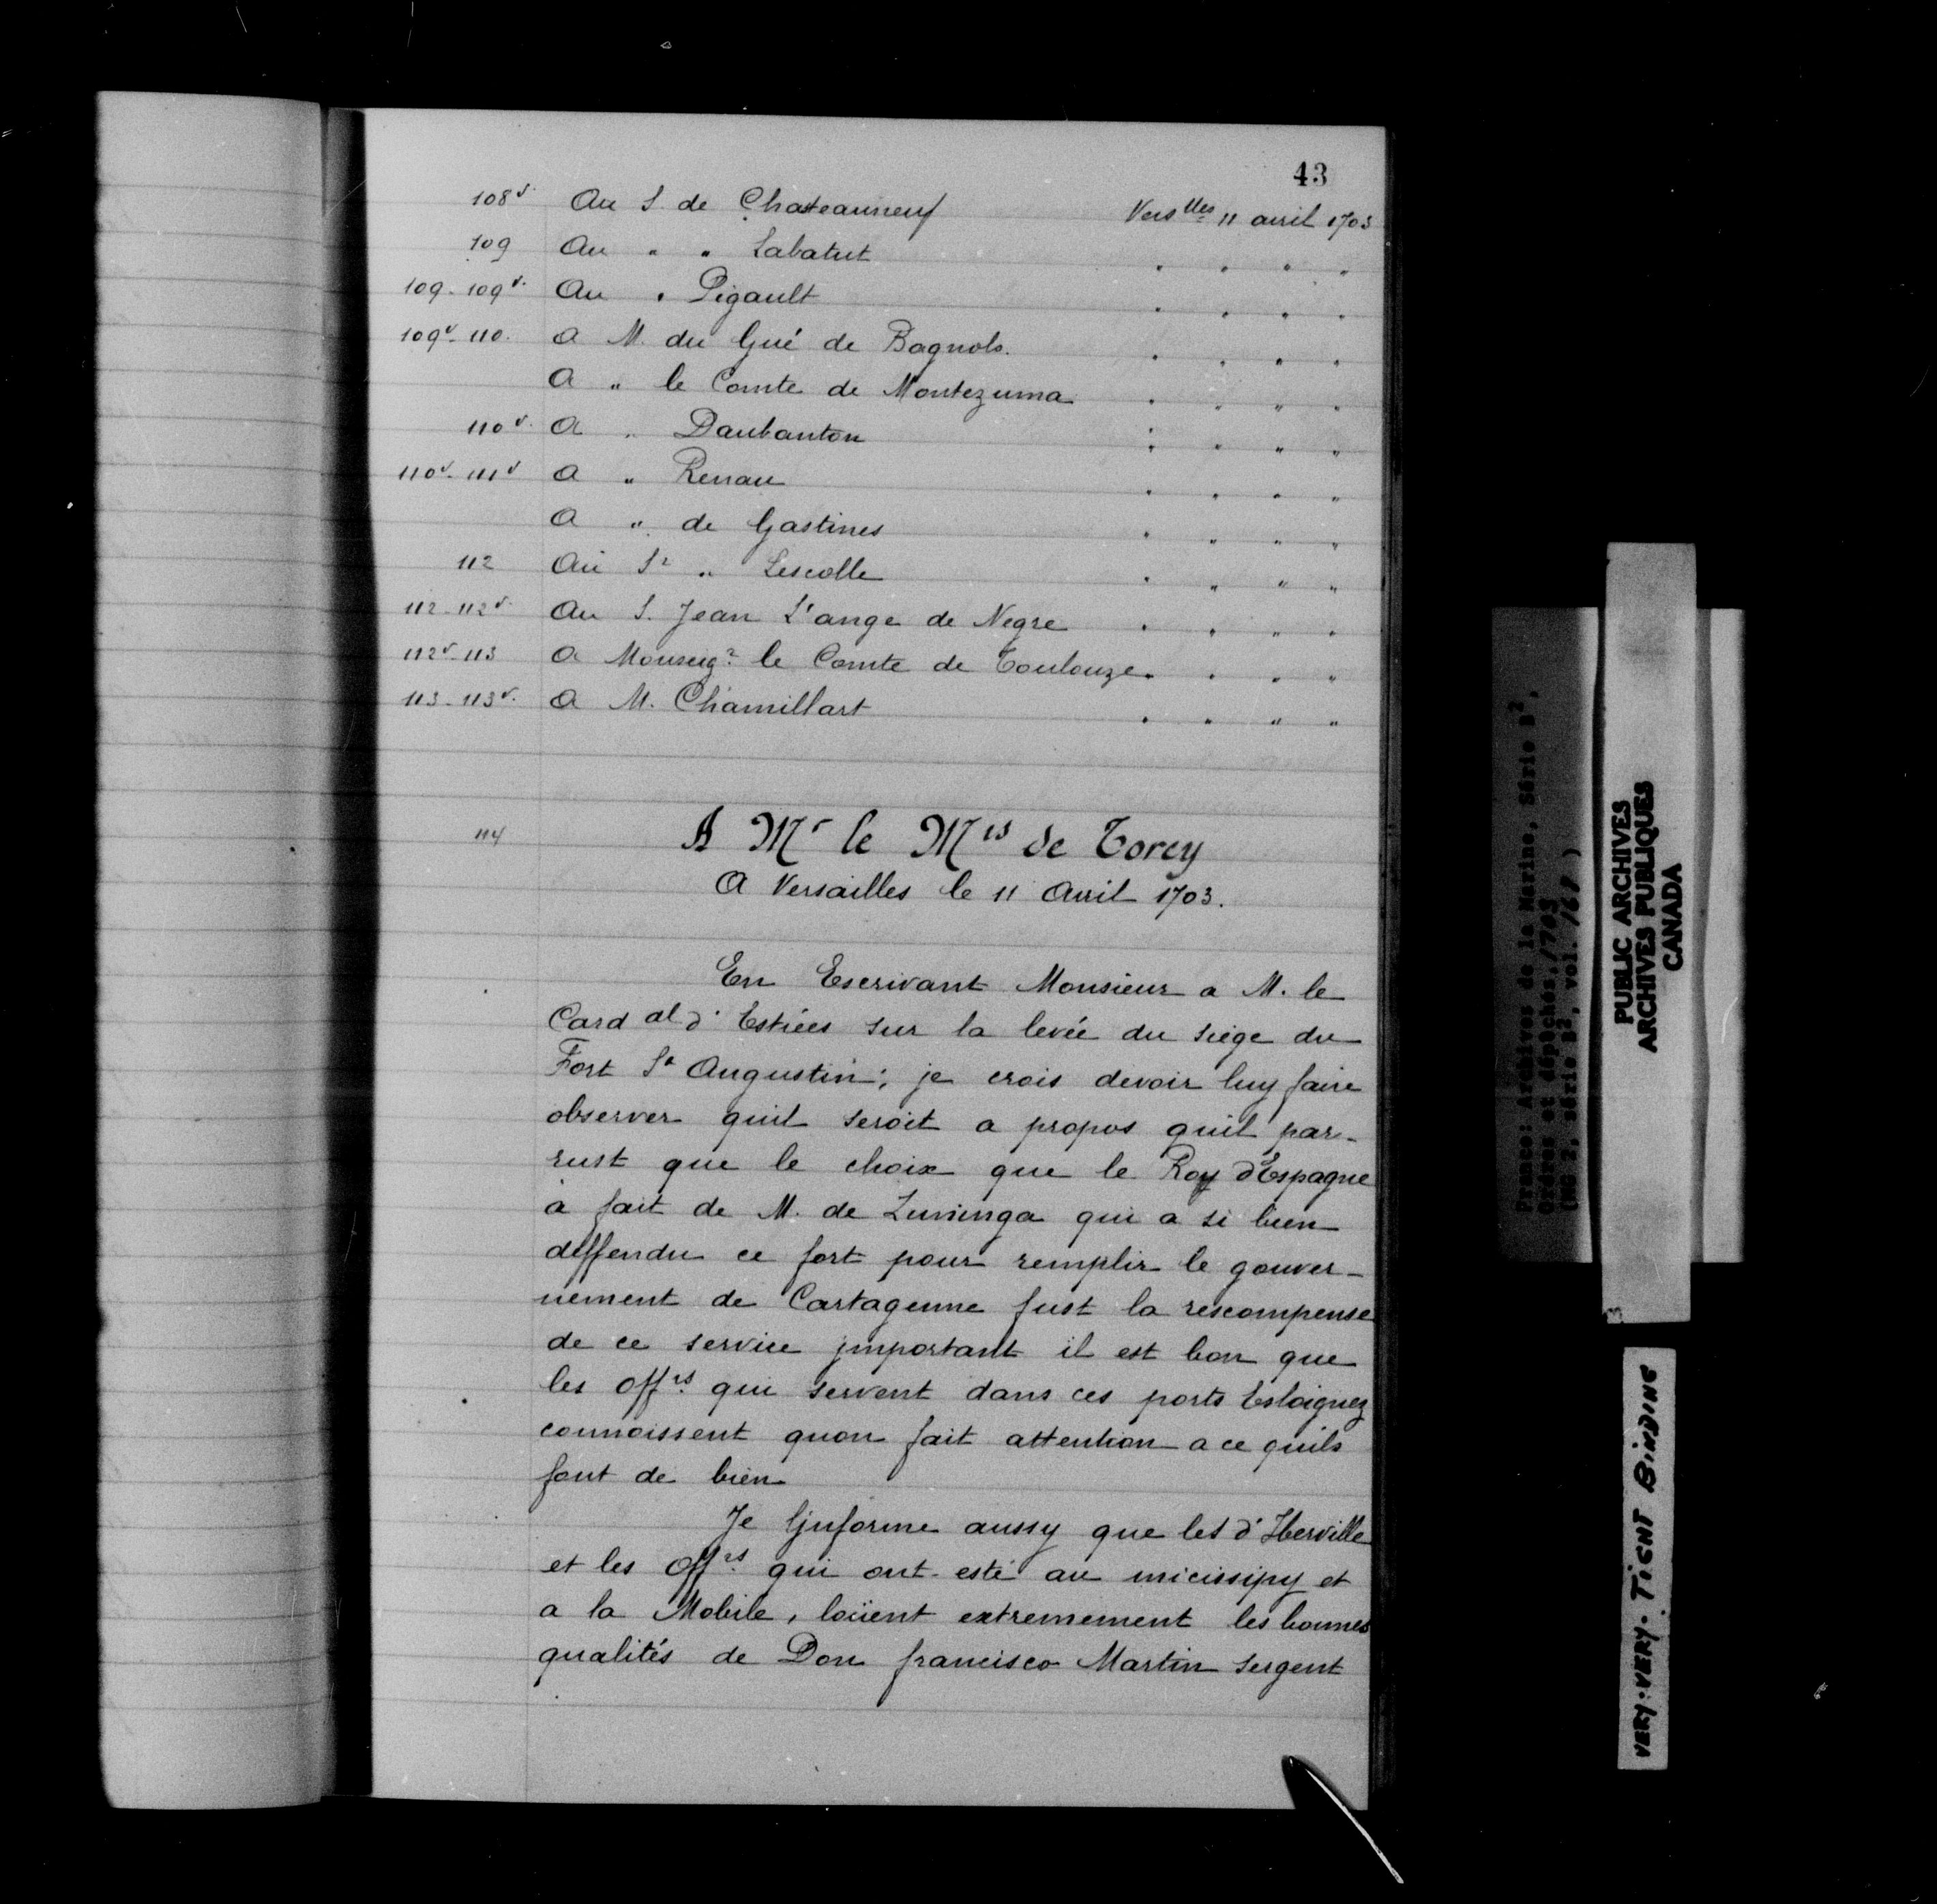 43
108v. Au S. de Chateauneuf Vers lles 11 avril 1703
109 Au " " Labatut " " " "
109-109v. Au " Pigault " " " "
109v-110. A M. du Gué de Bagnols. " " " "
A " le Comte de Montezuma " " " "
110v. A " Daubanton " " " "
110v-111v A " Renau " " " "
A " de Gastines " " " "
112 Au Sr " Lescolle " " " "
112-112v. Au S. Jean L'ange de Negre " " " "
112v-113 A Monseigr le Comte de Toulouze " " " "
113-113v. A M. Chamillart " " " "
114 A Mr le Mis de Torcy
A Versailles le 11 Avril 1703.
En Escrivant Monsieur a M. le
Card al d'Estrées sur la levée du siège du
Fort St Augustin; je crois devoir luy faire
observer quil seroit a propos quil par-
rust que le choix que le Roy d'Espagne
à fait de M. de Zuninga qui a si bien
deffendu ce fort pour remplir le gouver-
nement de Cartagenne fust la rescompense
de ce service jmportant il est bon que
les offrs qui servent dans ces ports Esloignez
connoissent quon fait attention a ce quils
font de bien
Je ljnforme aussy que leS d'Iberville
et les Offrs qui ont esté au micissipy et
a la Mobile, loüent extremement les bonnes
qualités de Don francisco Martin sergent
France: Archives de la Marine, Série B2,
Ordres et dépêches, 1703
(MG 2, série B2, vol. 168)
PUBLIC ARCHIVES
ARCHIVES PUBLIQUES
CANADA
VERY-VERY-TIGHT BINDING